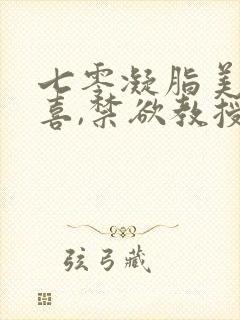 七零凝脂美
喜,禁欲教授
弦弓藏